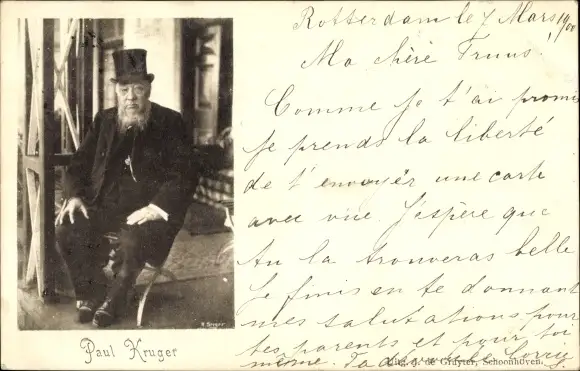 Rotterdam le 7 Mars 1900
Ma chère Truus!
Comme je t'ai promis
je prends la liberté
de t'envoyer une carte
avec vue. J'espère que
tu la trouveras belle
Je finis en te donnant
mes salutations pour
tes parents et pour toi
même.
Paul Kruger
Uitg. J. de Gruyter, Schoonhoven.